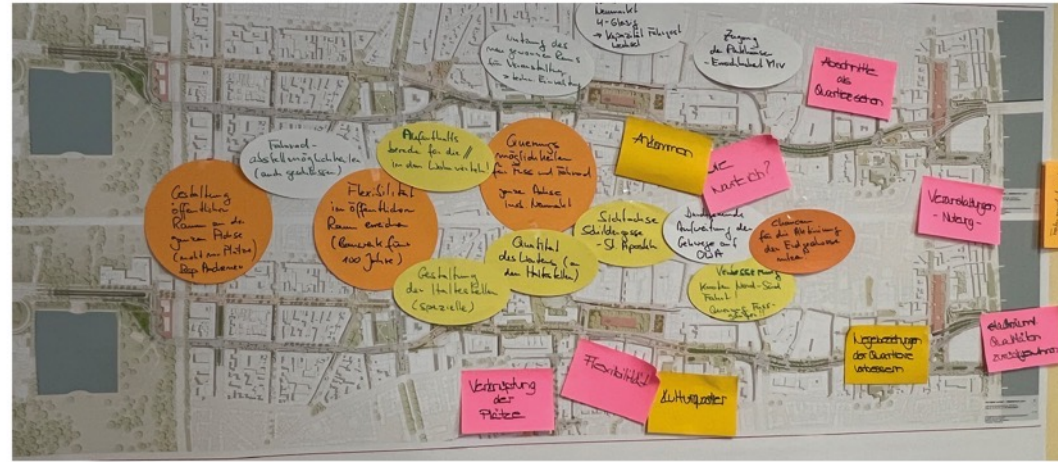 Neumarkt
4-Gleisig
→ Kapazität Fahrgast
wechsel
Nutzung des
neu gewonnenen Raums
für Veranstaltung
Zugang
der Parkhäuser
Abschnitte
als
Quartier sehen
Fahrrad-
abstellmöglichkeiten
(auch geschlossen)
Aufenthalts
bereiche für die
in den Linien
Querungs
möglichkeiten
für Fuss und Fahrrad
ganze Achse
inkl. Neumarkt
Ankommen
warte ich?
Gestaltung
öffentlichen
Raum an der
ganzen Achse
(nicht nur Plätze
Flexibilität
im öffentlichen
Raum erreichen
(Bauwerk fürs
100 Jahre)
Sichtachse
Schildergasse
- St. Aposteln
Durchgehende
Aufweitung der
Gehwege auf
OWA
Chancen
für die Aktivierung
der Erdgeschosse
nutzen
Veranstaltungen
- Nutzung -
Qualität
des Wartens (an
den Haltestellen)
Gestaltung
der Haltestellen
(spezielle)
Verbesserung
Knoten Nord-Süd
Fahrt
Wegebeziehungen
der Quartiere
verbessern
Qualitäten
Verknüpfung
der
Plätze
Flexibilität
Kulturquartier